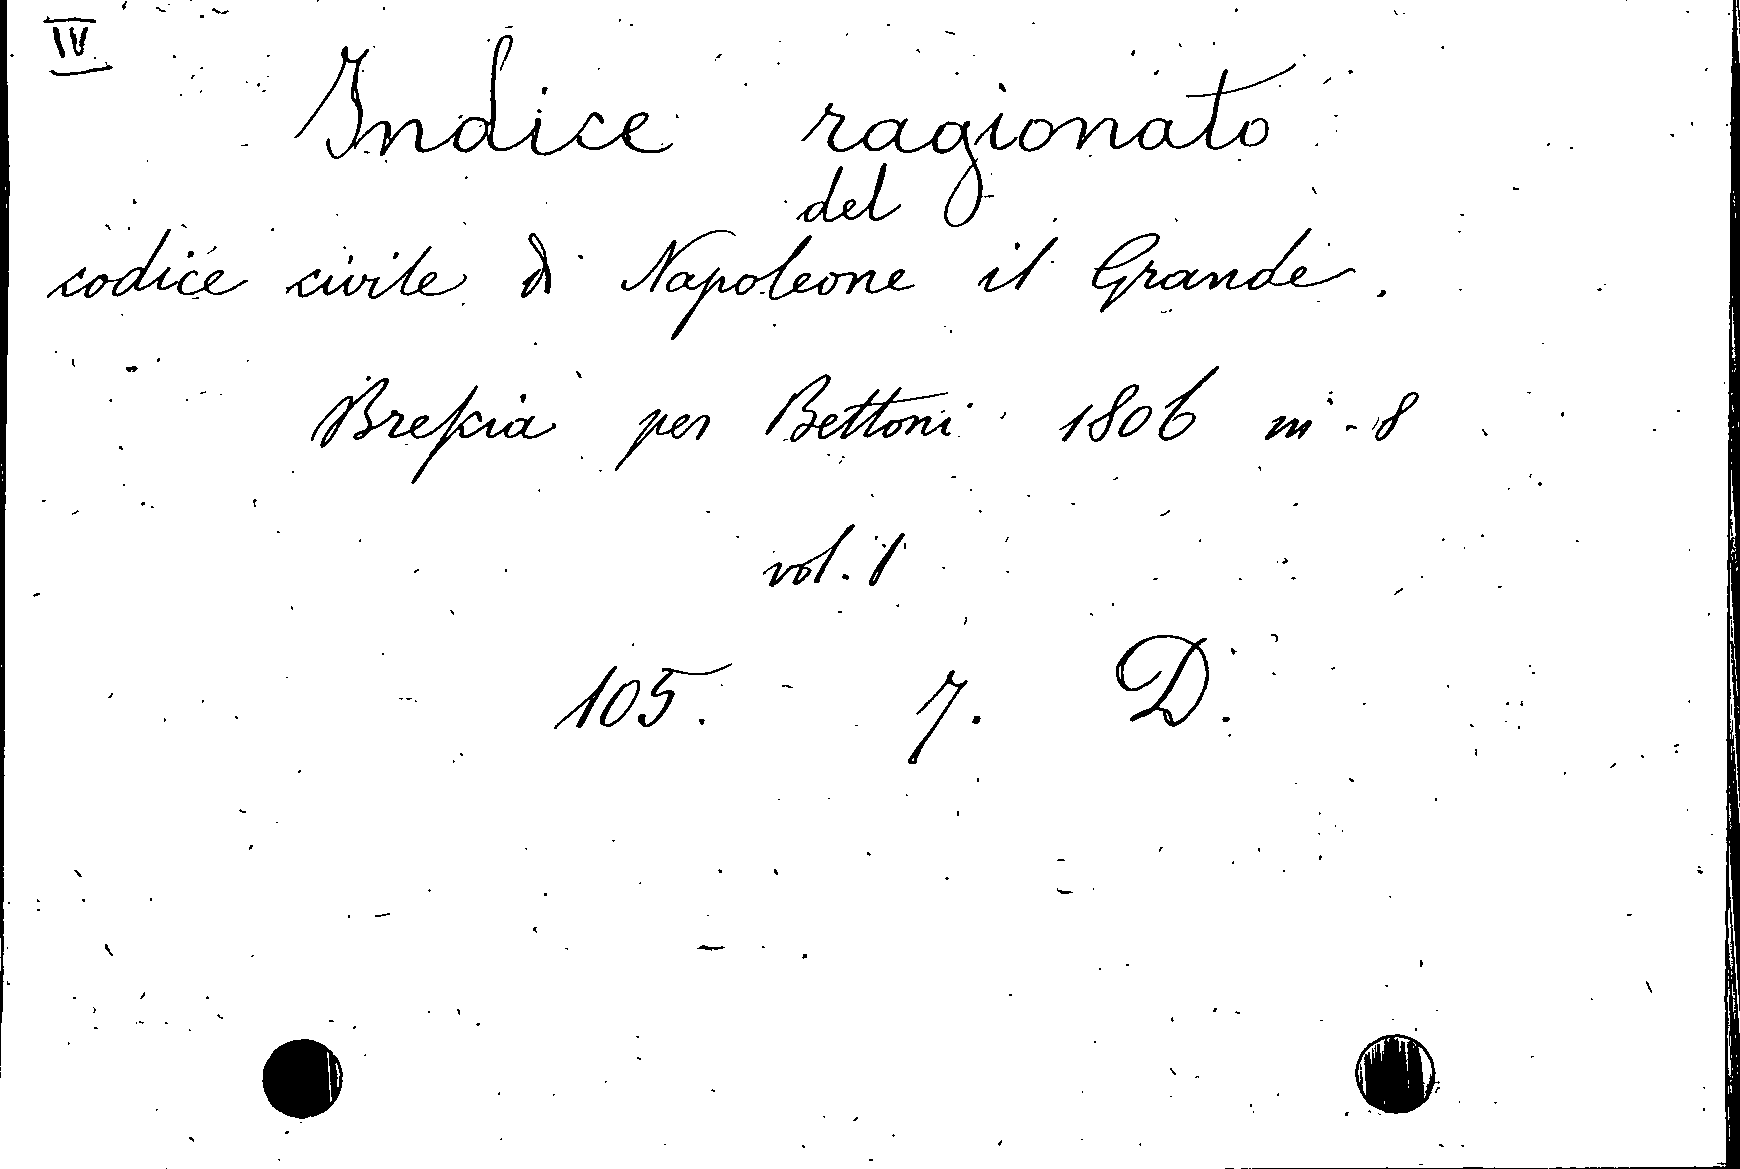 IV
Indice ragionato
del
codice civile di Napoleone il Grande.
Breſcia per Bettoni 1806 in-8
vol. 1
105. 7. D.